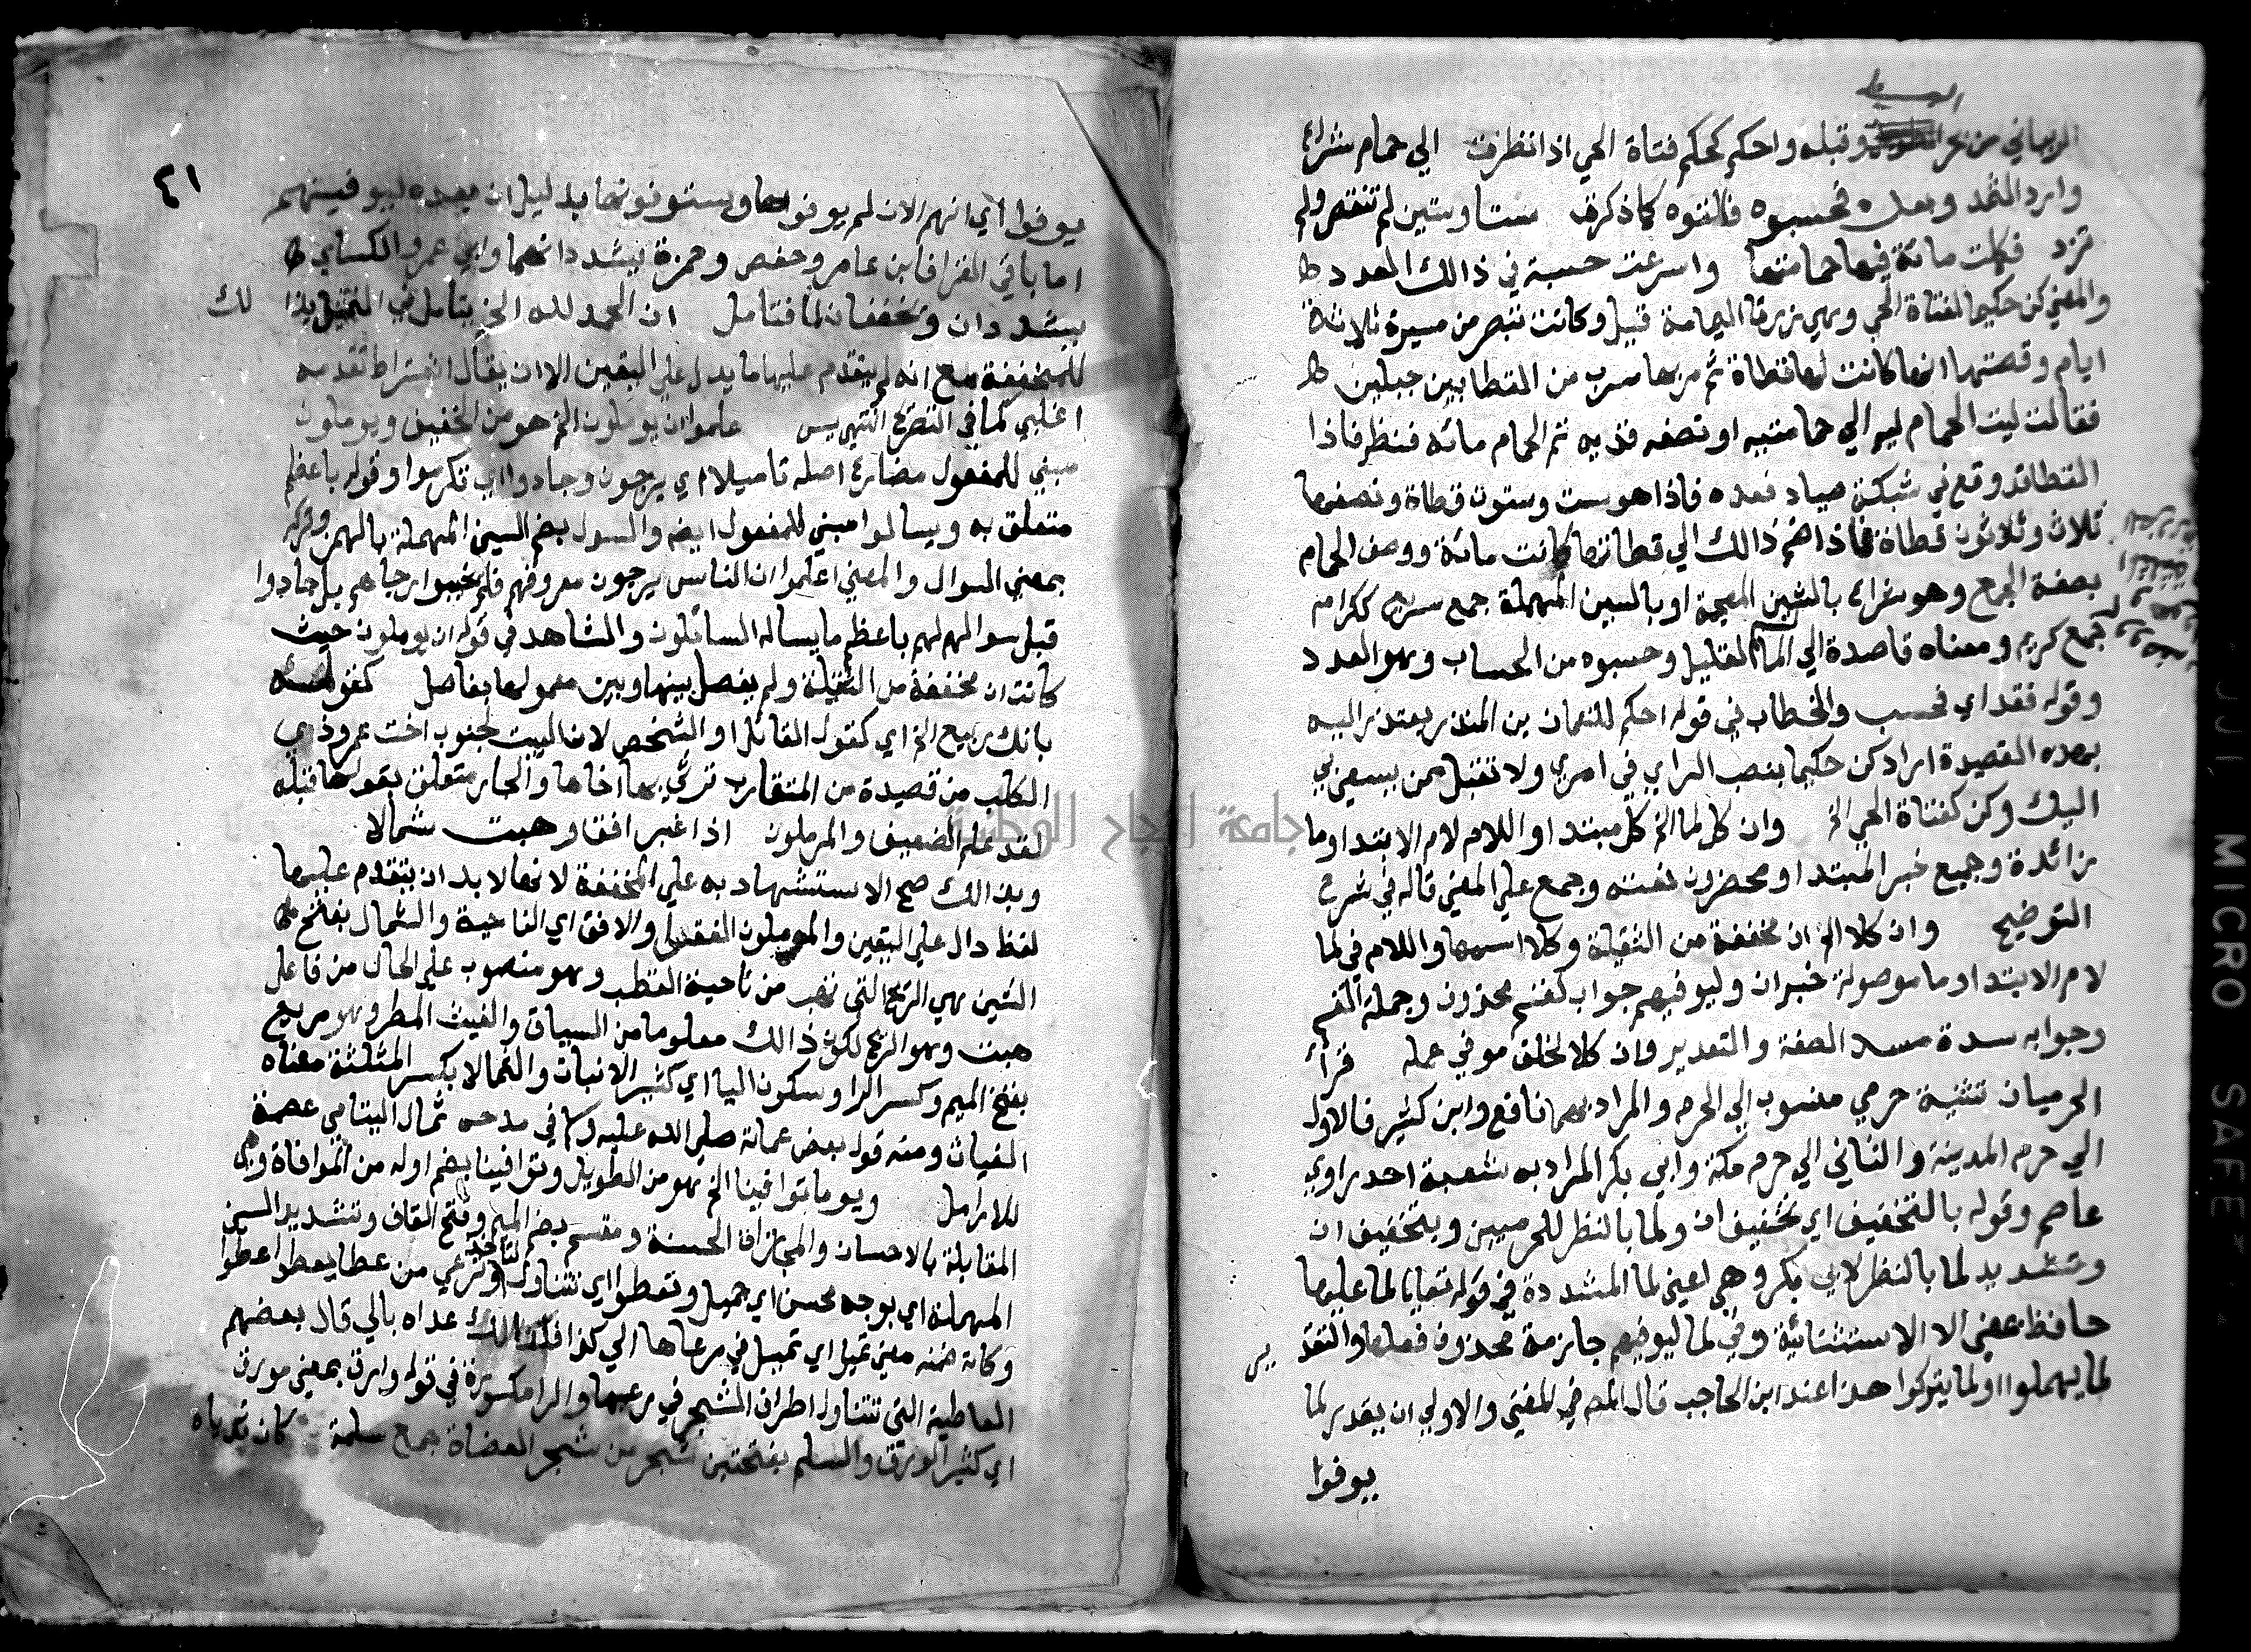 البسيط
الذبياني من بحر وقبله واحكم كحكم فتاة الحي اذ نظرت الي حمام شراع
وارد الثمد وبعده فحسبوه فالفوه كما ذكرت ستا وستين لم تنقص ولم
تزد فكملت مائة فيها حمامتها واسرعت حسبة في ذالك العدد
والمعني كن حكيما كفتاة الحي وهي زرقا اليمامة قيل وكانت تبصر من مسيرة ثلاثة
ايام وقصتها انها كانت لها قطاة ثم مر بها سرب من القطا بين جبلين
فقالت ليت الحمام ليه الي حمامتيه او نصفه قديه تم الحمام مائه فنظر فاذا
القطا قد وقع في شبكة صياد فعده فاذا هو ست وستون قطاة ونصفها
ثلاث وثلاثون قطاة فاذا ضم ذالك الي قطاتها كانت مائة ووصف الحمام
بصفة الجمع وهو شراع بالشين المعجمة او بالسين المهملة جمع سريع ككرام
جمع كريم ومعناه قاصدة الي الما القليل وحسبوه من الحساب وهو العدد
وقوله فقد اي فحسب والخطاب في قوله احكم للنعمان بن المنذر يعتذر اليه
بهذه القصيدة اراد كن حكيما بنصب الراي في امري ولا تقبل ممن يسعي بي
اليك وكن كفتاة الحي الخ وان كل لما الخ كل مبتدا واللام لام الابتدا وما
زائدة وجميع خبر المبتدا ومحضرون نعته وجمع علي المعني قاله في شرح
التوضيح وان كلا الخ ان مخففة من الثقيلة وكلا اسمها واللام في لما
لام الابتدا وما موصولة خبر ان وليوفينهم جواب كقسم محذوف وجملة القسم
وجوابه سدة مسد الصفة والتقدير وان كلا لخلق موفي عمله قرأ
الحرميان تثنية حرمي منسوب الي الحرم والمراد بهما نافع وابن كثير فالاول
الي حرم المدينة والثاني الي حرم مكة وابي بكر المراد به شعبة احد راوي
عاصم وقوله بالتخفيف اي تخفيف ان ولما بالنظر للحرميين وبتخفيف ان
وتشديد لما بالنظر لابي بكر وهي اعني لما المشددة في قوله تعالي لما عليها
حافظ بمعني الا الاستثنائية وفي لما ليوفينهم جازمة محذوف فعلها والتقدير
لما يهملوا او لما يتركوا هذا عند ابن الحاجب قال المص في المغني والاولي ان يقدر لما
يوفوا
٤١
يوفوا اي انهم الان لم يوفوها وسيوفونها بدليل ان بعده ليوفينهم
اما باقي القرا فابن عامر وحفص وحمزة يشددانهما وابي عمرو والكساي
يشددان وتخففان لما فتامل ان الحمد لله الخ يتامل في التمثيل بذالك
للمخففة مع انه لم يتقدم عليها ما يدل علي اليقين الا ان يقال اشتراط تقدمه
اغلبي كما في التصريح انتهي يس علموا ان يوملون الخ هو من الخفيف ويوملون
مبني للمفعول مضارع اصله تاميلا اي يرجون وجادوا اي تكرموا وقوله باعظم
متعلق به ويسالوا مبني للمفعول ايضا والسول بضم السين المهملة بالهمز وتركه
بمعني السوال والمعني اعلموا ان الناس يرجون معروفهم فلم يخيبوا رجاهم بل جادوا
قبل سوالهم لهم باعظم ما يساله السائلون والشاهد في قوله ان يوملون حيث
كانت ان مخففة من الثقيلة ولم يفصل بينها وبين معمولها بفاصل كقوله
بانك ربيع الخ اي كقول القائل او الشخص لان البيت لجنوب اخت عمرو ذي
الكلب من قصيدة من المتقارب ترثي بها اخاها والجار متعلق بقولها قبله
لقد علم الضعيف والمرملون اذا اغبر افق وهبت شمالا
وبذالك صح الاستشهاد به علي المخففة لانها لا بد ان يتقدم عليها
لفظ دال علي اليقين والمرملون الفقرا والافق اي الناحية والشمال بفتح
الشين هي الريح التي تهب من ناحية القطب وهو منصوب علي الحال من فاعل
هبت وهو الريح لكون ذالك معلوما من السياق والغيث المطر وهو مريع
بفتح الميم وكسر الرا وسكون اليا اي كثير الانبات والثمالا بكسر المثلثة معناه
الغياث ومنه قول بعض عماته صلي الله عليه وسلم في مدحه ثمال اليتامي عصمة
للارامل ويوما توافينا الخ هو من الطويل وتوافينا بضم اوله من الموافاة وهي
المقابلة بالاحسان والمجازاة الحسنة ومقسم بضم الميم وفتح القاف وتشديد السين
المهملة اي بوجه محسن اي جميل وتعطوا اي تتناول لتاخذ وترعي من عطا يعطوا عطوا
وكانه ضمنه معني تميل اي تميل في مرعاها الي كذا فلذالك عداه بالي قال بعضهم
العاطية التي تتناول اطراف الشجر في مرعيها والرا مكسورة في قوله وارق بمعني مورق
اي كثير الورق والسلم بفتحتين شجر من شجر العضاة جمع سلمة كان ثدياه